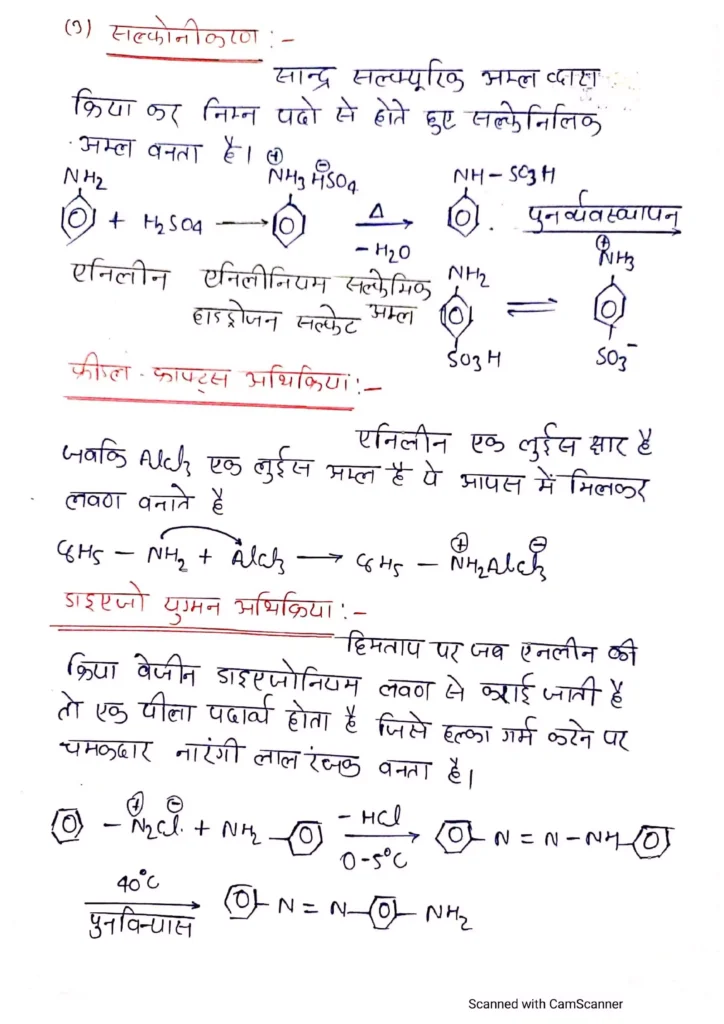 (3) सल्फोनीकरण :-
सान्द्र सल्फ्यूरिक अम्ल द्वारा
क्रिया कर निम्न पदो से होते हुए सल्फेनिलिक
अम्ल बनता है।
NH2 ⊕NH3 ⊖HSO4 NH - SO3H
+ H2SO4 ⟶ Δ - H2O पुनर्व्यवस्थापन
एनिलीन एनिलीनियम सल्फेमिक NH2 ⇌ ⊕NH3
हाइड्रोजन सल्फेट अम्ल
SO3H SO3⁻
फ्रीडल - क्राफ्ट्स अभिक्रिया :-
एनिलीन एक लुईस क्षार है
जबकि AlCl3 एक लुईस अम्ल है ये आपस में मिलकर
लवण बनाते है
C6H5 - NH2 + AlCl3 ⟶ C6H5 - ⊕NH2AlCl3⊖
डाइएजो युग्मन अभिक्रिया :-
हिमताप पर जब एनलीन की
क्रिया बेंजीन डाइएजोनियम लवण से कराई जाती है
तो एक पीला पदार्थ होता है जिसे हल्का गर्म करने पर
चमकदार नारंगी लाल रंजक बनता है।
- ⊕N2Cl⊖ + NH2 - - HCl 0-5°C ⟶ - N = N - NH -
40°C पुनर्विन्यास ⟶ - N = N - - NH2
Scanned with CamScanner